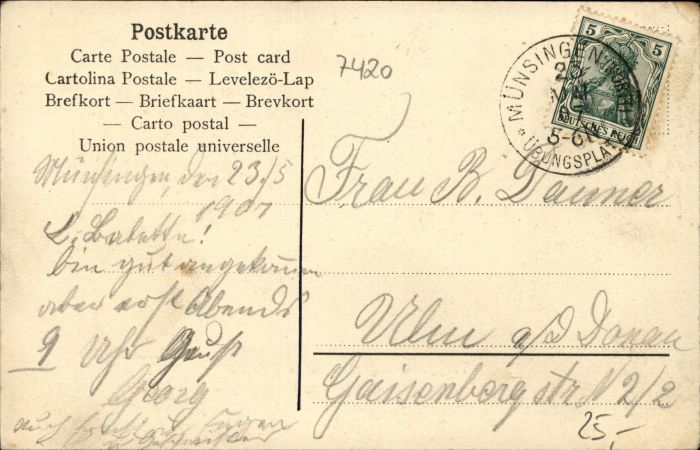 Postkarte
Carte Postale — Post card
Cartolina Postale — Levelezö-Lap
Brefkort — Briefkaart — Brevkort
— Carto postal —
Union postale universelle
7420
5 5
DEUTSCHES REICH
MÜNSINGEN
ÜBUNGSPLATZ
Münsingen, den 23./5
1907
L. Babette!
bin gut angekommen
aber erst Abends
9 Uhr Gruß
Georg
auch
Frau B. Dauner
Ulm a/D Donau
Gaisenbergstr N 2/2
25,-